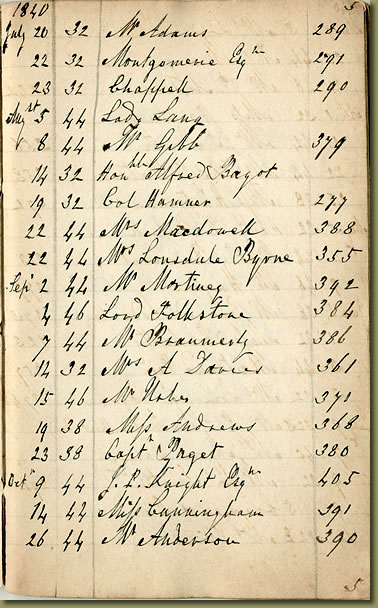 1840 5
July 20 32 Mr Adams 289
22 32 Montgomerie Esqre 291
23 32 Chappell 290
Augst 5 44 Lady Lang
8 44 Mr Gibb 379
14 32 Honble Alfred Bagot
19 32 Col Hamner 277
22 44 Mrs Macdowell 388
22 44 Mrs Lonsdale Byrne 355
Sepr 2 44 Mr Mortiney 392
4 46 Lord Folkstone 384
7 44 Mr 386
14 32 Mrs A Davies 361
15 46 Mr 371
19 38 Miss Andrews 368
23 38 Captn Paget 380
Octr 9 44 J. L. Knight Esqre 405
14 44 Miss Cunningham 391
26 44 Mr Anderson 390
5